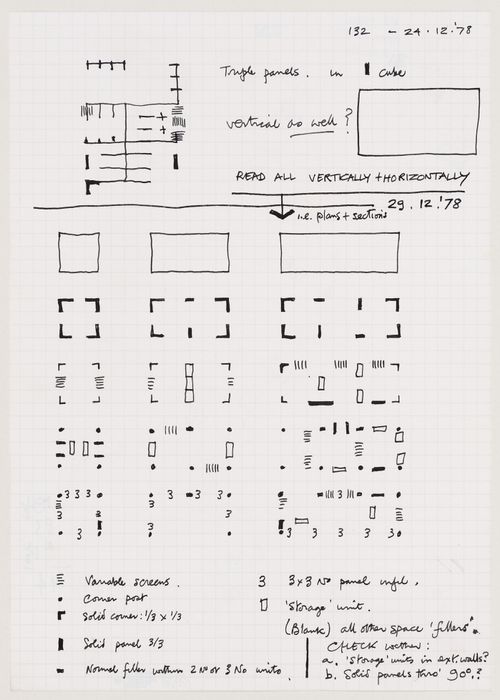 132 - 24.12.'78
Triple panels. in 1 cube
vertical as well?
READ ALL VERTICALLY + HORIZONTALLY
29.12.'78
i.e. plans + sections
3 3 3 3 3
3 3
3 3
3 3 3 3 3 3
Variable screens. 3 3x3 No panel infil.
Corner post
Solid corner: 1/3 x 1/3 'Storage' unit.
(Blank) all other space 'fillers'.
Solid panel 3/3 CHECK wether:
a. 'storage' units in ext. walls?
Normal filler within 2 No or 3 No units. b. Solid panels thro' 90°.?